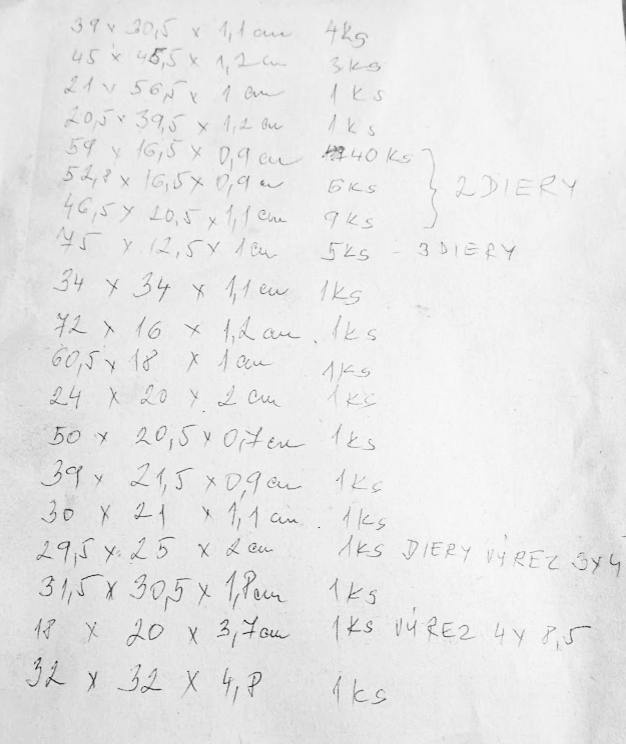 39 x 30,5 x 1,1 cm 4ks
45 x 45,5 x 1,2 cm 3ks
21 x 56,5 x 1 cm 1ks
20,5 x 39,5 x 1,2 cm 1ks
59 x 16,5 x 0,9 cm 40ks
52,8 x 16,5 x 0,9 cm 6ks } 2 DIERY
46,5 x 20,5 x 1,1 cm 9ks
75 x 12,5 x 1cm 5ks - 3 DIERY
34 x 34 x 1,1 cm 1ks
72 x 16 x 1,2 cm . 1ks
60,5 x 18 x 1 cm 1ks
24 x 20 x 2 cm 1ks
50 x 20,5 x 0,7cm 1ks
39 x 21,5 x 0,9cm 1ks
30 x 21 x 1,1 cm . 1ks
29,5 x 25 x 2cm 1ks DIERY VÝREZ 3x4
31,5 x 30,5 x 1,8cm 1ks
18 x 20 x 3,7cm 1ks VÝREZ 4 x 8,5
32 x 32 x 4,8 1ks